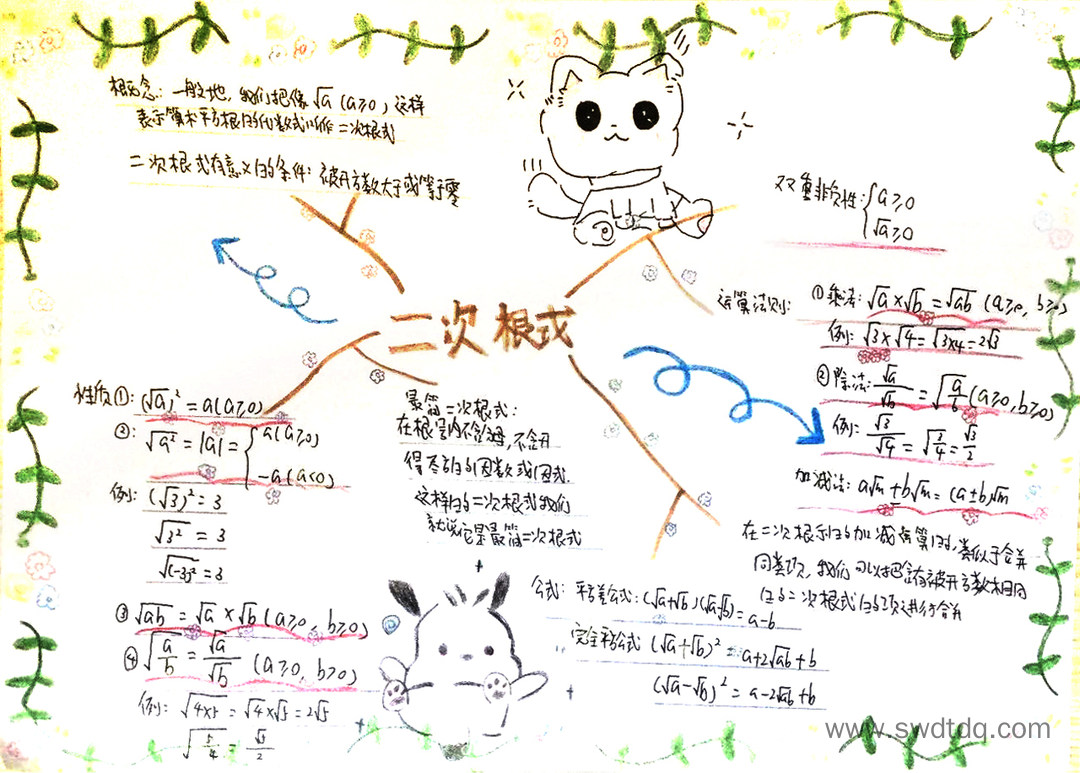 概念：一般地，我们把像√a（a≥0）这样
表示算术平方根的代数式叫作二次根式
二次根式有意义的条件：被开方数大于或等于零
双重非负性：{a≥0
√a≥0
二次根式
运算法则：①乘法：√a×√b=√ab（a≥0，b≥0）
例：√3×√4=√3×4=2√3
②除法：√a/√b=√(a/b)(a≥0,b≥0)
例：√3/√4=√(3/4)=√3/2
加减法：a√m+b√m=(a±b)√m
在二次根式的加减运算时，类似于合并
同类项，我们可以把含有被开方数相同
的二次根式的项进行合并
性质①：(√a)²=a(a≥0)
②：√a²=|a|={a(a≥0)
-a(a<0)
例：(√3)²=3
√3²=3
√(-3)²=3
③√ab=√a×√b(a≥0，b≥0)
④√(a/b)=√a/√b（a≥0，b>0）
例：√4×5=√4×√5=2√5
√(5/4)=√5/2
最简二次根式：
在根号内不含分母，不含开
得尽方的因数或因式.
这样的二次根式我们
就说它是最简二次根式
公式：平方差公式：(√a+√b)(√a-√b)=a-b
完全平方公式（√a+√b)²=a+2√ab+b
(√a-√b)²=a-2√ab+b
www.swdtdq.com